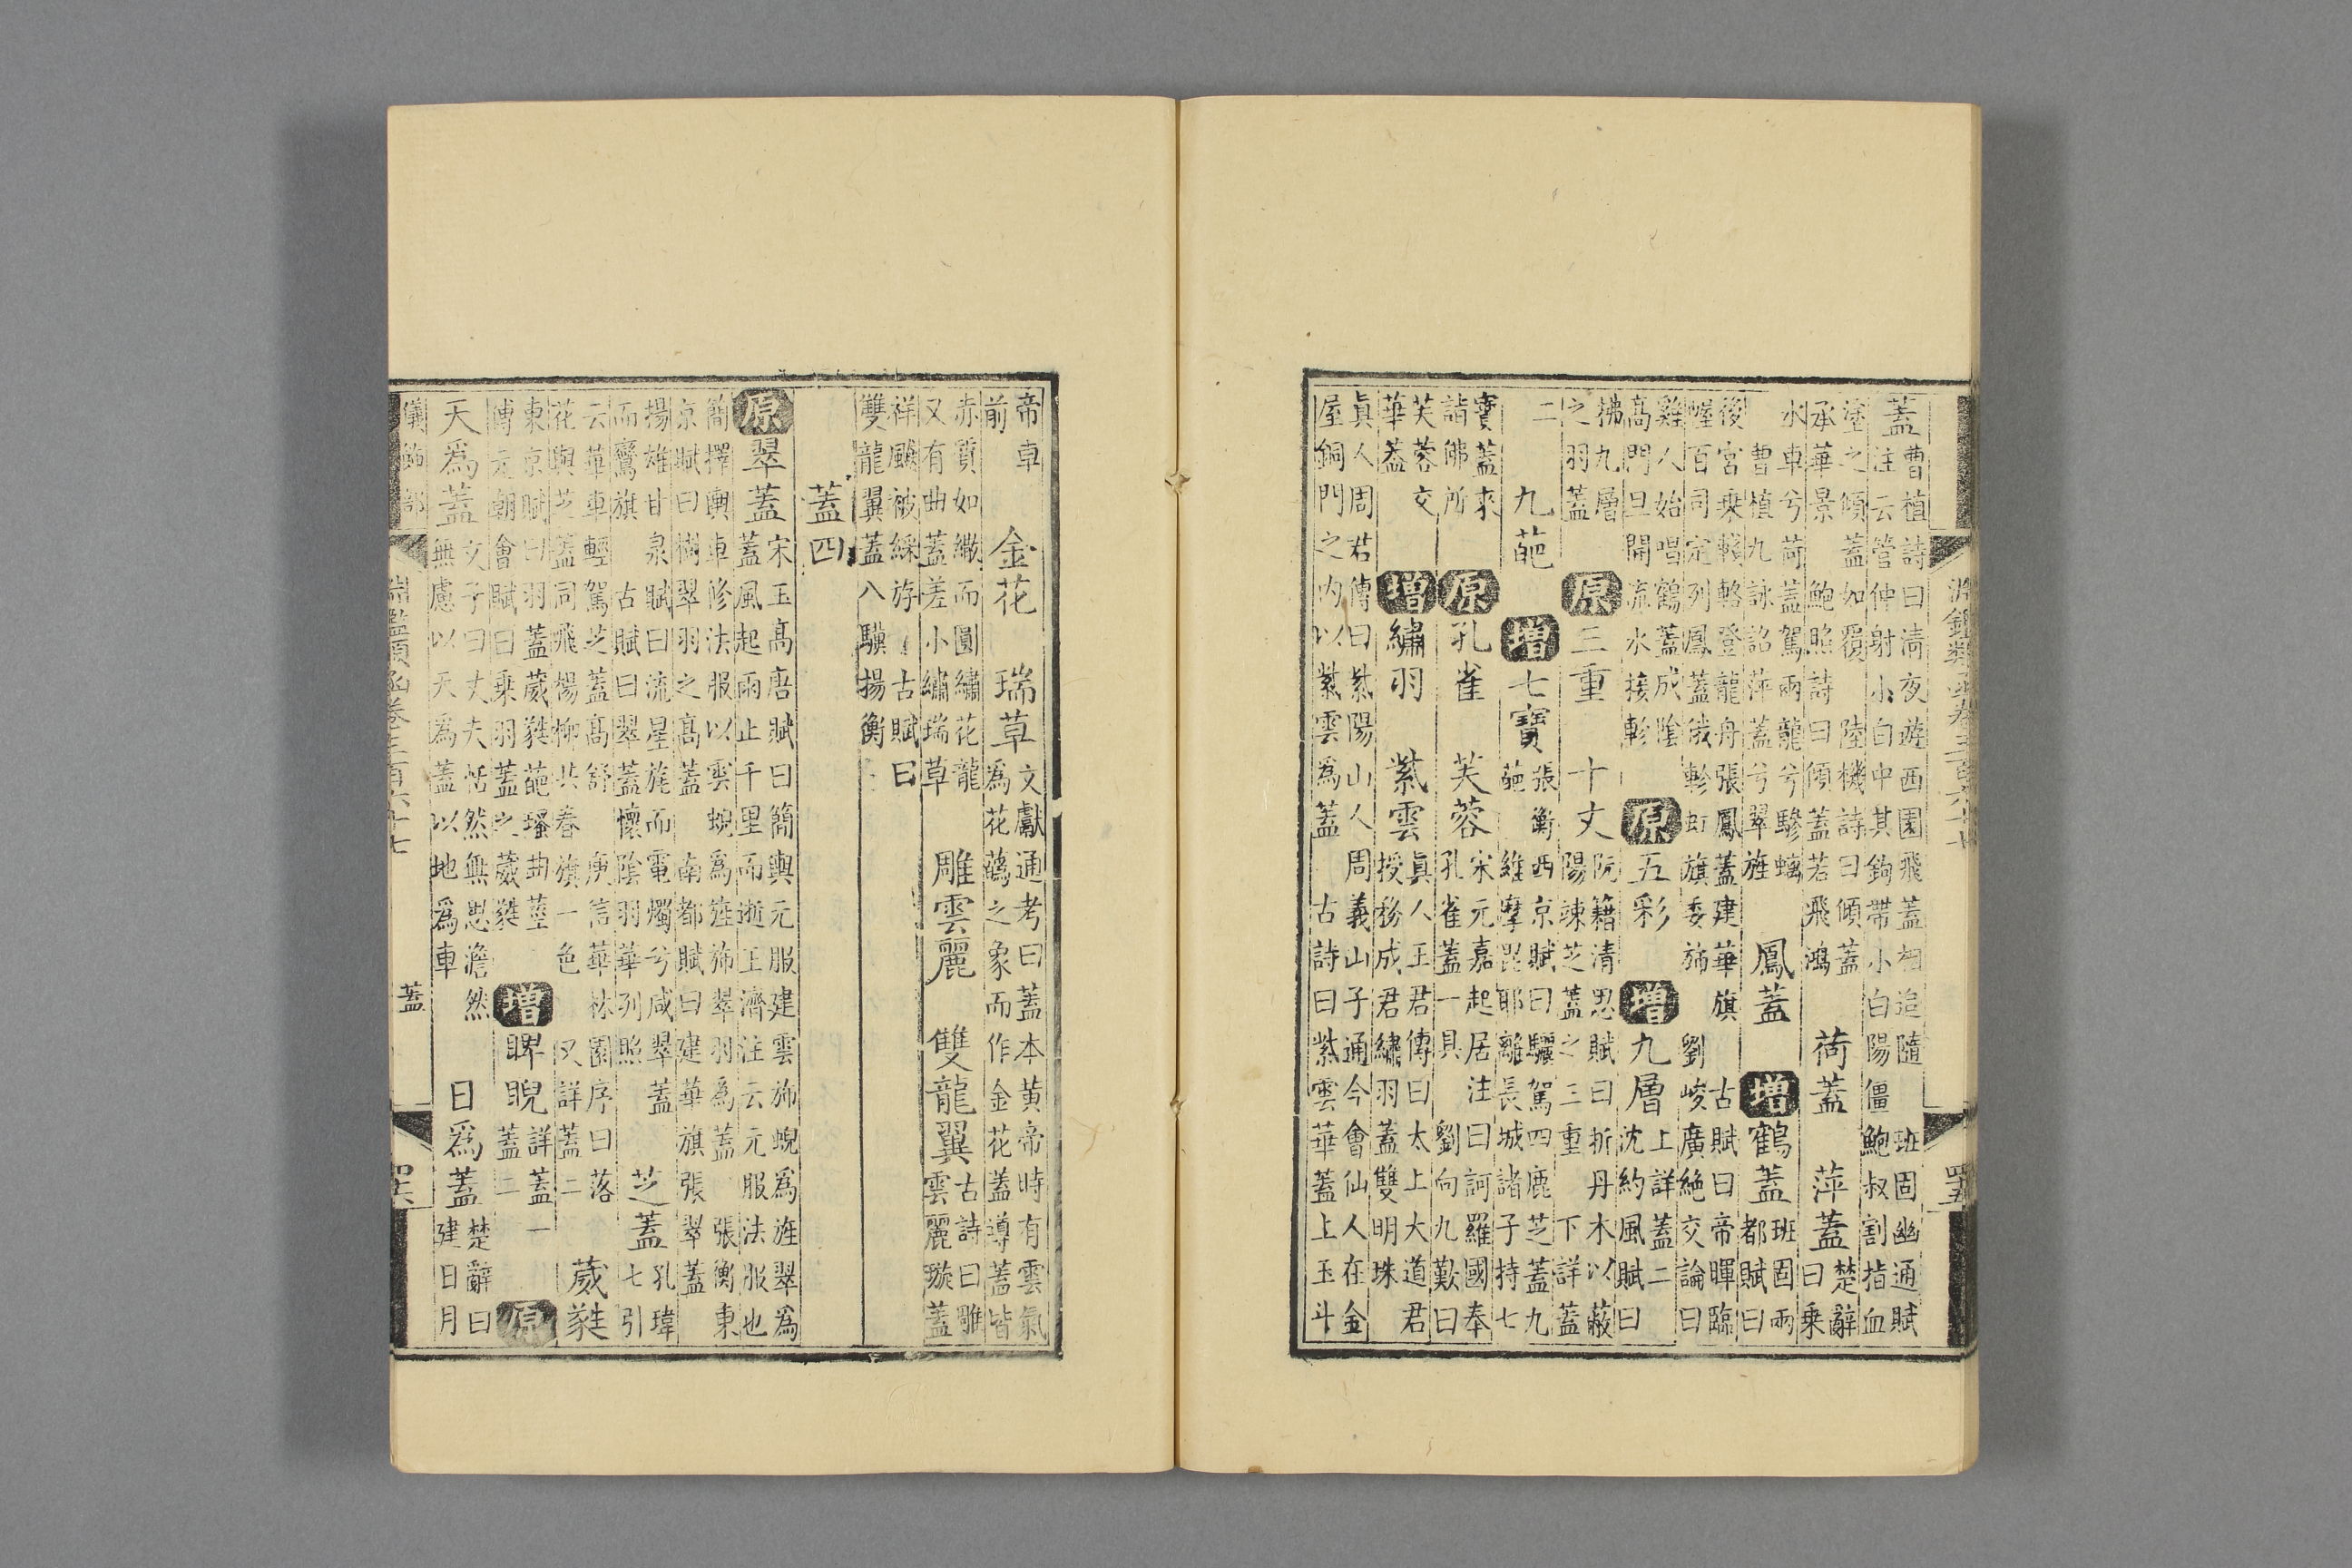 淵鑑類函卷三百六十七　四十五
蓋
曹植詩曰清夜遊西園飛蓋相追隨　班固幽通賦
注云管仲射小白中其鉤帶小白陽僵鮑叔割指血
塗之　傾蓋如覆　陸機詩曰傾蓋
承華景　鮑照詩曰傾蓋若飛鴻
荷蓋　萍蓋
楚辭
曰乘
水車兮荷蓋駕兩龍兮驂螭
曹植九詠詔萍蓋兮翠旌
鳳蓋　增鶴蓋
班固兩
都賦曰
後宮乘輚輅登龍舟張鳳蓋建華旗　古賦曰帝暉臨
幄百司定列鳳蓋俄軫虹旗委斾　劉峻廣絕交論曰
雞人始唱鶴蓋成陰
高門旦開流水接軫
原五彩　增九層
上詳蓋二
沈約風賦曰
拂九層
之羽蓋
原三重　十丈
阮籍清思賦曰折丹木以蔽
陽竦芝蓋之三重　下詳蓋
二
九葩　增七寶
張衡西京賦曰驪駕四鹿芝蓋九
葩　維摩毘耶離長城諸子持七
寶蓋來
詣佛所
原孔雀　芙蓉
宋元嘉起居注曰訶羅國奉
孔雀蓋一具　劉向九歎曰
芙蓉交
華蓋
增繡羽　紫雲
眞人王君傳曰太上大道君
授務成君繡羽蓋雙明珠
眞人周君傳曰紫陽山人周義山子通今會仙人在金
屋銅門之內以紫雲為蓋　古詩曰紫雲華蓋上玉斗
帝車
前
金花　瑞草
文獻通考曰蓋本黃帝時有雲氣
為花蘤之象而作金花蓋導蓋皆
赤質如繖而圓繡花龍
又有曲蓋差小繡瑞草
雕雲麗　雙龍翼
古詩曰雕
雲麗璇蓋
祥颷被綵斿　古賦曰
雙龍翼蓋八驥揚衡
蓋四
原翠蓋
宋玉高唐賦曰簡輿元服建雲斾蜺為旌翠為
蓋風起雨止千里而逝　王濟注云元服法服也
簡擇輿車修法服以雲蜺為旌斾翠羽為蓋　張衡東
京賦曰樹翠羽之高蓋　南都賦曰建華旗張翠蓋
揚雄甘泉賦曰流星旄而電燭兮咸翠蓋
而鸞旗　古賦曰翠蓋懷陰羽華列照
芝蓋
孔瑋
七引
云華車輕駕芝蓋高舒　庾信華林園序曰落
花與芝蓋同飛楊柳共春旗一色　又詳蓋二
葳蕤
東京賦曰羽蓋葳蕤葩瑵曲莖
傅元朝會賦曰乘羽蓋之葳蕤
增睥睨
詳蓋一
蓋二
原
天為蓋
文子曰丈夫恬然無思澹然
無慮以天為蓋以地為車
日為蓋
楚辭曰
建日月
儀飾部　蓋
淵鑑類函卷三百六十七　四十六